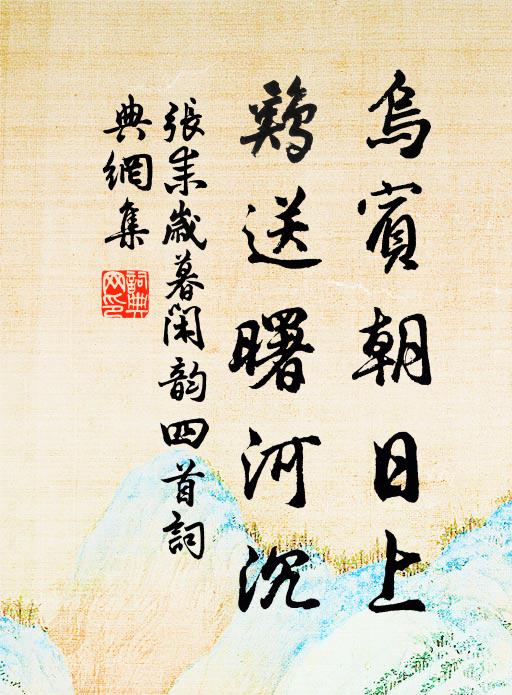 烏賓朝日上
鷄送曙河沉
張耒歲暮閑韵四首詞
典網集
詞典網印